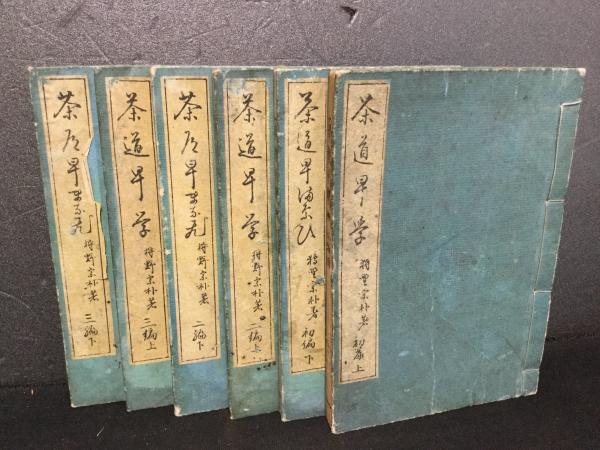 茶道早学 狩野宗朴著 初篇上
茶道早満奈ひ 狩野宗朴著 初編下
茶道早学 狩野宗朴著 二編上
茶道早 狩野宗朴著 二編下
茶道早学 狩野宗朴著 三編上
茶道早 狩野宗朴著 三編下